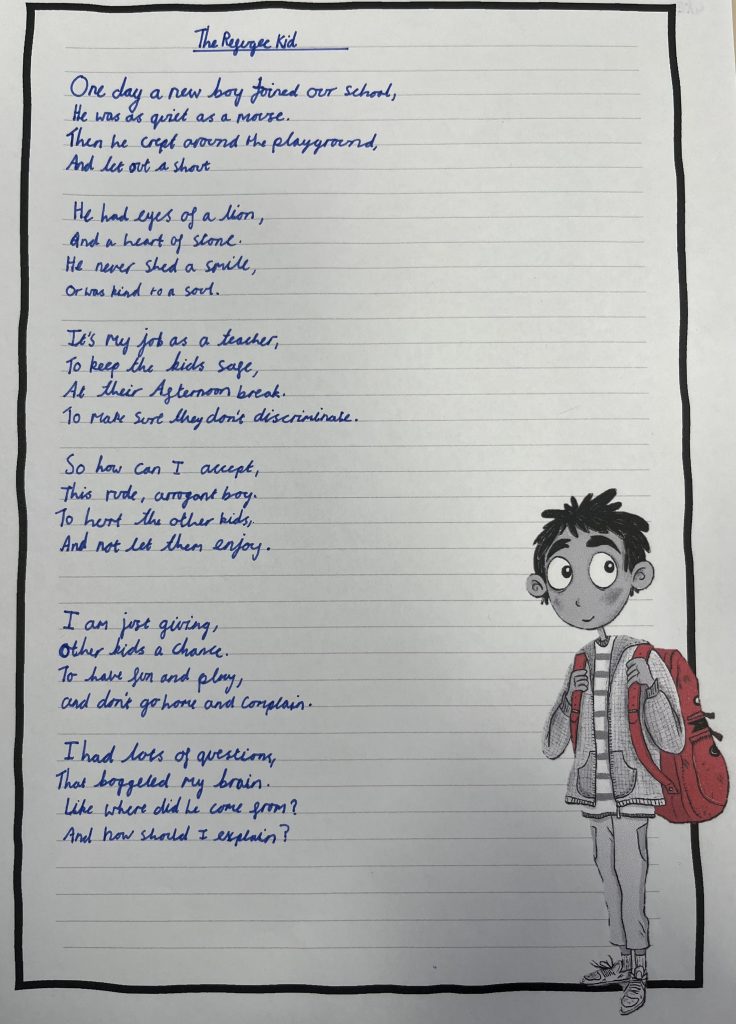 The Refugee Kid
One day a new boy joined our school,
He was as quiet as a mouse.
Then he crept around the playground,
And let out a shout
He had eyes of a lion,
And a heart of stone.
He never shed a smile,
Or was kind to a soul.
It's my job as a teacher,
To keep the kids safe,
At their Afternoon break.
To make sure they don't discriminate.
So how can I accept,
This rude, arrogant boy.
To hurt the other kids,
And not let them enjoy.
I am just giving,
Other kids a chance.
To have fun and play,
and don't go home and complain.
I had lots of questions,
That boggeled my brain.
Like where did he come from?
And how should I explain?